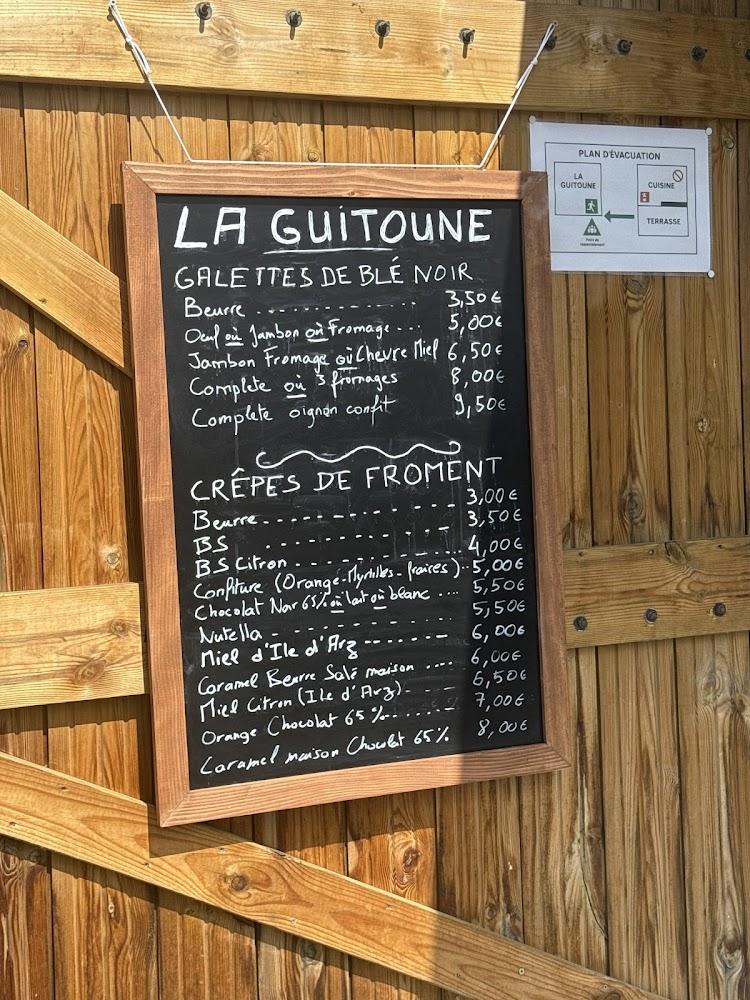 LA GUITOUNE
GALETTES DE BLÉ NOIR
Beurre .................. 3,50€
Oeuf où Jambon où Fromage ... 5,00€
Jambon Fromage où Chèvre Miel 6,50€
Complete où 3 fromages 8,00€
Complete oignon confit 9,50€
CRÊPES DE FROMENT
Beurre - - - - - - - - - - - 3,00€
BS . - - - - - - - - - - - 3,50€
BS Citron - - - - - - - - - 4,00€
Confiture (Orange-Myrtilles-fraises) . 5,00€
Chocolat Noir 65% où lait où blanc .... 5,50€
Nutella - - - - - - - - - - 5,50€
Miel d'Ile d'Arz - - - - - - 6,00€
Caramel Beurre Salé maison .... 6,00€
Miel Citron (Ile d'Arz) - - - - 6,50€
Orange Chocolat 65% - - - - - - 7,00€
Caramel maison Chocolat 65% 8,00€
PLAN D'ÉVACUATION
LA GUITOUNE
CUISINE
TERRASSE
Point de rassemblement